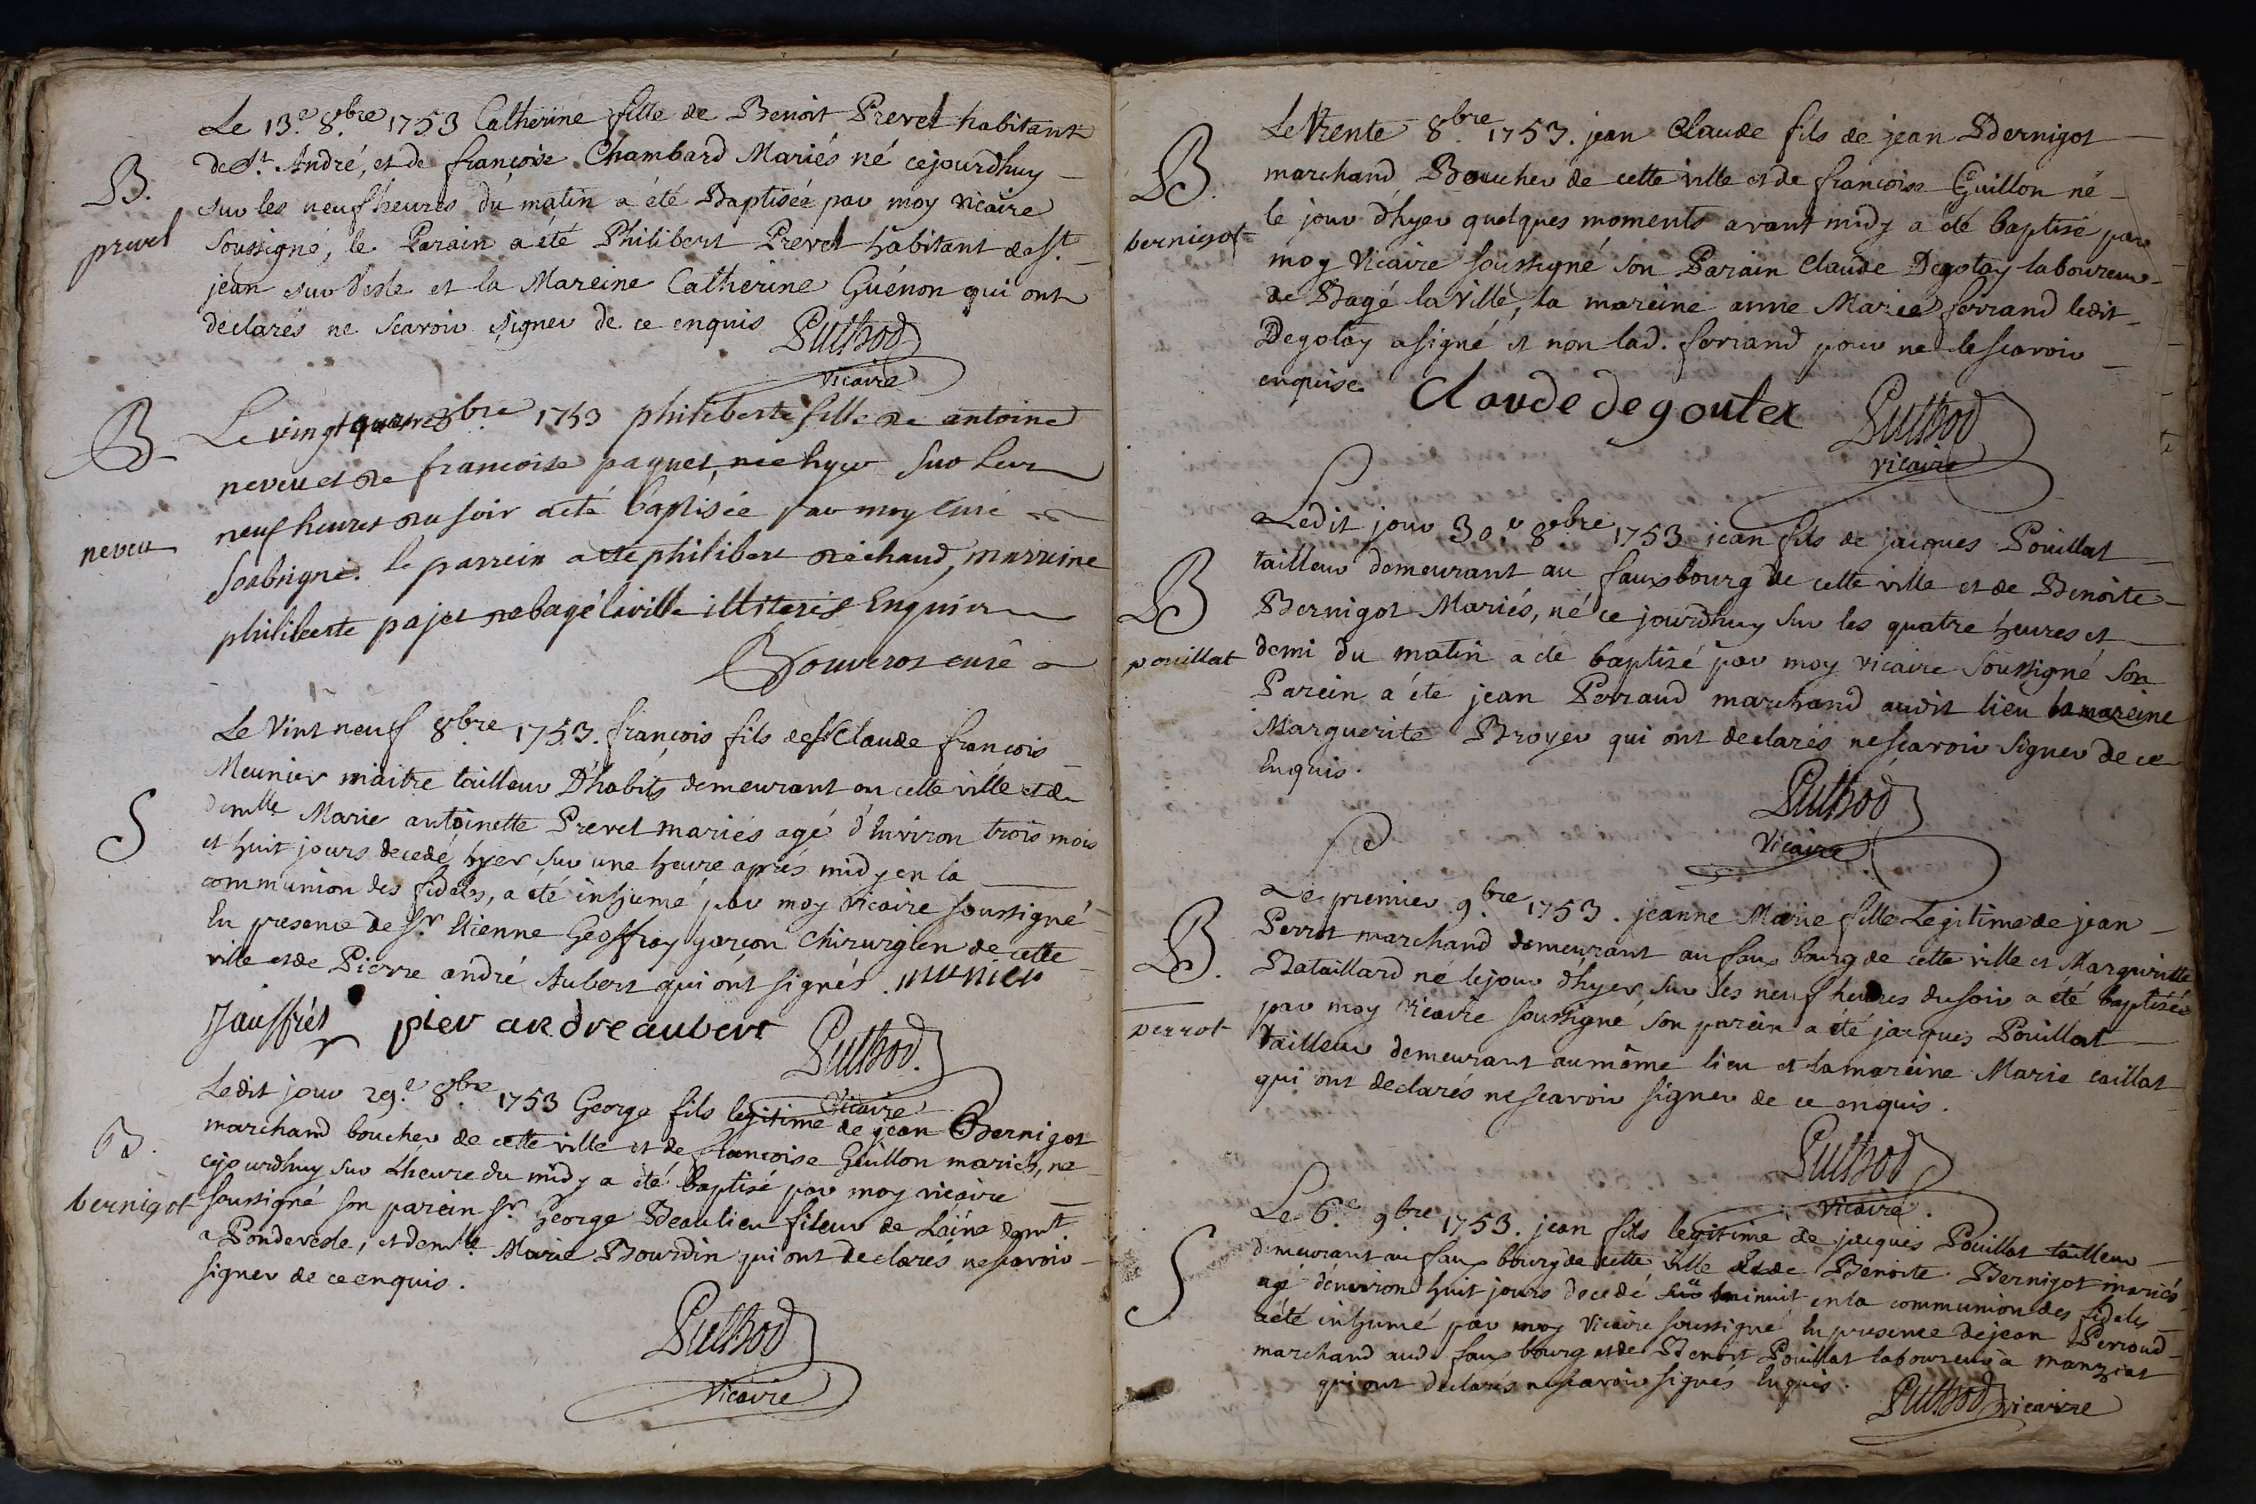 Le 13.e 8.bre 1753 Catherine fille de Benoit Prevel habitant
de St. André, et de françoise Chambard Mariés né cejourdhuy
B.
sur les neuf heures du matin a été Baptisée par moy vicaire
prevel
soussigné, le Parain a été Philibert Prevel habitant de St.
jean sur Vesle et la Mareine Catherine Guénon qui ont
declarés ne scavoir signer de ce enquis Puthod
vicaire
B
Le vingt quatre 8bre 1753 philiberte fille de antoine
neveu et de francoise paquet, née hyer sur les
neuf heures du soir a été baptisée par moy curé
neveu
soubsigné. le parrein a été philibert dechaud, marreine
philiberte pajet de bagé la ville illiteris Enquis
Bouveros curé
Le Vint neuf 8bre 1753. françois fils de Sr Claude françois
Meunier maitre tailleur D'habits demeurant en cette ville et de
S
demlle Marie antoinette Prevel mariés agé d'Environ trois mois
et huit jours decedé hyer sur une heure après midy en la
communion des fideles, a été inhumé par moy vicaire soussigné
En presence de Sr Etienne Geoffray garçon chirurgien de cette
ville et de Pierre andré Aubert qui ont signés. munier
Jauffrés pier andre aubert Puthod.
Vicaire
Ledit jour 29.e 8.bre 1753 George fils legitime de jean Bernigot
B.
marchand boucher de cette ville et de françoise Guillon mariés, né
cejourdhuy sur L'heure du midy a été baptisé par moy vicaire
bernigot
soussigné son parein Sr. George Beaulieu fileur de Laine demt
a Pondevesle, et demlle Marie Bourdin qui ont declarés ne scavoir
signer de ce enquis.
Puthod
Vicaire
Le trente 8.bre 1753. jean Claude fils de jean Bernigot
B.
marchand Boucher de cette ville et de françoise Guillon né
bernigot
le jour d'hyer quelques moments avant midy a été baptisé par
moy Vicaire soussigné son Parain Claude Degotay laboureur
de Bagé la ville, la mareine anne Marie ferrand ledit
Degotay a signé et non lad. ferrand pour ne le scavoir
enquise Claude degoutex Puthod
vicaire
Ledit jour 30.e 8bre 1753 jean fils de jacques Pouillat
B
tailleur demeurant au fauxbourg de cette ville et de Benoite
Bernigot Mariés, né ce jourdhuy sur les quatre heures et
pouillat
demi du matin a été baptisé par moy vicaire soussigné son
Parein a été jean Perraud marchand audit lieu la mareine
Marguerite Broyer qui ont declarés ne scavoir signer de ce
Enquis.
Puthod
Vicaire
Le premier 9bre 1753. jeanne Marie fille Légitime de jean
B.
Perrot marchand demeurant au faux bourg de cette ville et Marguritte
Bataillard né le jour d'hyer sur les neuf heures du soir a été baptisée
perrot
par moy vicaire soussigné, son parein a été jacques Pouillat
tailleur demeurant au même lieu et la mareine Marie caillat
qui ont declarés ne scavoir signer de ce enquis.
Puthod
vicaire.
Le 6.e 9bre 1753. jean fils legitime de jacques Pouillat tailleur
S
demeurant au faux bourg de cette ville et de Benoite Bernigot mariés
agé d'environ huit jours decedé sur minuit en la communion des fideles
a été inhumé par moy Vicaire soussigné En presence de jean Perroud
marchand aud. faux bourg et de Benoit Pouillat laboureur a manziat
qui ont declarés ne scavoir signer Enquis. Puthod vicaire